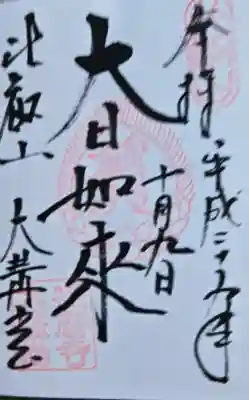 奉拝 平成二十五年
十月九日
大日如來
比叡山 大講堂